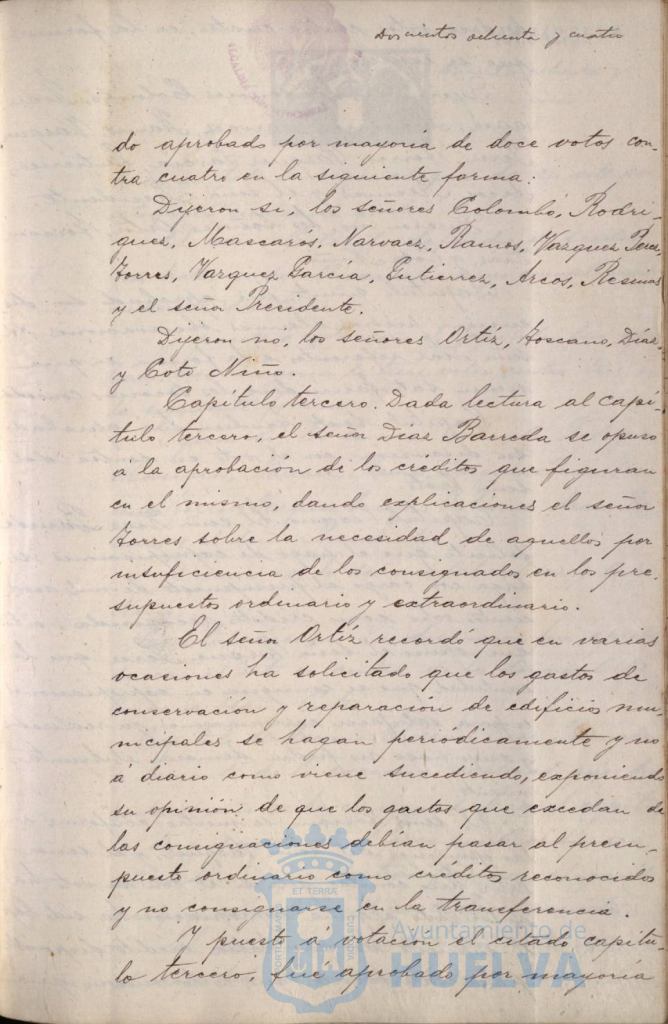 Doscientos ochenta y cuatro
do aprobado por mayoría de doce votos con-
tra cuatro en la siguiente forma:
Dijeron si, los señores Colombó, Rodri-
guez, Mascarós, Narvaez, Ramos, Vazquez Perez,
Torres, Vazquez García, Gutierrez, Arcos, Resinas
y el señor Presidente.
Dijeron nó, los señores Ortíz, Toscano, Díaz,
y Coto Niño.
Capítulo tercero. Dada lectura al capí-
tulo tercero, el señor Díaz Barreda se opuso
á la aprobación de los créditos que figuran
en el mismo, dando explicaciones el señor
Torres sobre la necesidad de aquellos por
insuficiencia de los consignados en los pre-
supuestos ordinario y extraordinario.
El señor Ortíz recordó que en varias
ocasiones ha solicitado que los gastos de
conservación y reparación de edificios mu-
nicipales se hagan periódicamente y no
á diario como viene sucediendo, exponiendo
su opinión de que los gastos que excedan de
las consignaciones debían pasar al presu-
puesto ordinario como créditos reconocidos
y no consignarse en la transferencia.
Y puesto á votación el citado capítu-
lo tercero, fué aprobado por mayoría
ET TERRÆ
PORTUS MARIS
CUSTODIA
Ayuntamiento de
HUELVA